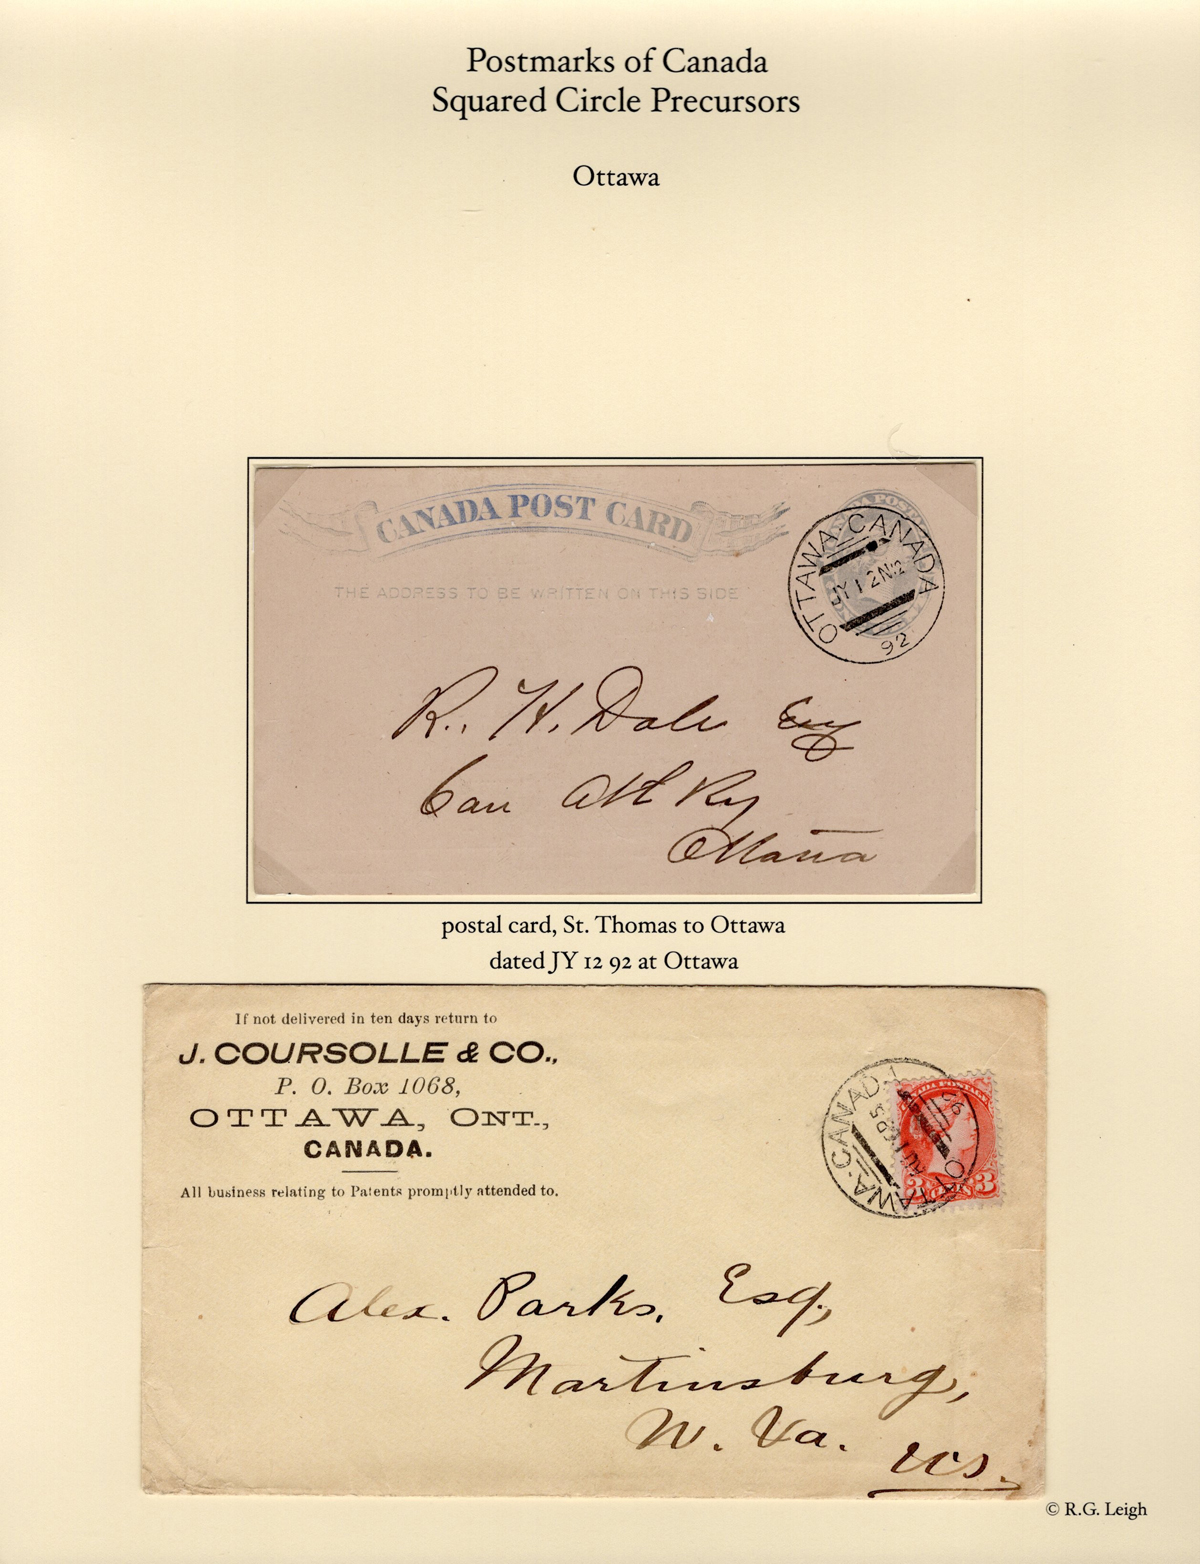 Postmarks of Canada
Squared Circle Precursors
Ottawa
CANADA POST CARD
THE ADDRESS TO BE WRITTEN ON THIS SIDE
CANADA POST
OTTAWA·CANADA
JY 12
92
R. H. Dale Esq
Can Atl Ry
Ottawa
postal card, St. Thomas to Ottawa
dated JY 12 92 at Ottawa
If not delivered in ten days return to
J. COURSOLLE & CO.,
P. O. Box 1068,
OTTAWA, ONT.,
CANADA.
All business relating to Patents promptly attended to.
OTTAWA·CANADA
CANADA POSTAGE
3 CENTS 3
Alex. Parks, Esq.,
Martinsburg,
W. Va.
US.
© R.G. Leigh